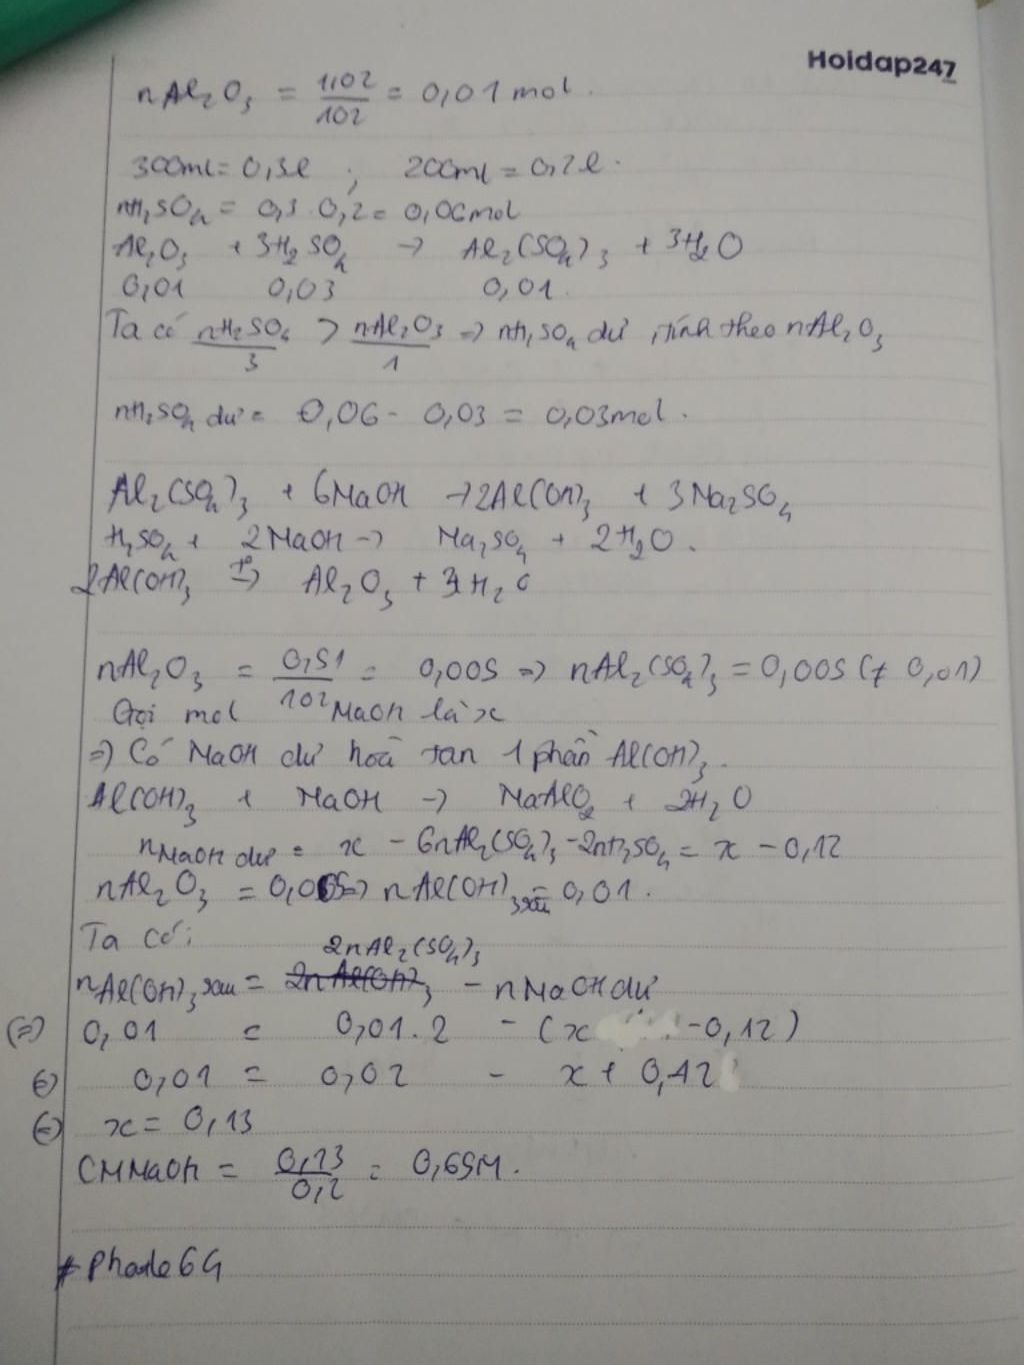 Hoidap247
nAl₂O₃ = 1,02/102 = 0,01 mol.
300ml = 0,3l ; 200ml = 0,2l.
nH₂SO₄ = 0,3 . 0,2 = 0,06mol
Al₂O₃ + 3H₂SO₄ → Al₂(SO₄)₃ + 3H₂O
0,01 0,03 0,01.
Ta có nH₂SO₄/3 > nAl₂O₃/1 => nH₂SO₄ dư, tính theo nAl₂O₃
nH₂SO₄ dư = 0,06 - 0,03 = 0,03mol.
Al₂(SO₄)₃ + 6NaOH → 2Al(OH)₃ + 3Na₂SO₄
H₂SO₄ + 2NaOH → Na₂SO₄ + 2H₂O.
2Al(OH)₃ t° → Al₂O₃ + 3H₂O
nAl₂O₃ = 0,51/102 = 0,005 => nAl₂(SO₄)₃ = 0,005 (≠ 0,01)
Gọi mol NaOH là x
=> Có NaOH dư hoà tan 1 phần Al(OH)₃.
Al(OH)₃ + NaOH → NaAlO₂ + 2H₂O
nNaOH dư = x - 6nAl₂(SO₄)₃ - 2nH₂SO₄ = x - 0,12
nAl₂O₃ = 0,005 => nAl(OH)₃ sau = 0,01.
Ta có:
2nAl₂(SO₄)₃
nAl(OH)₃ sau = 2nAl(OH)₃ - nNaOH dư
(=) 0,01 = 0,01.2 - (x - 0,12)
(=) 0,01 = 0,02 - x + 0,12
(=) x = 0,13
CMNaOH = 0,13/0,2 = 0,65M.